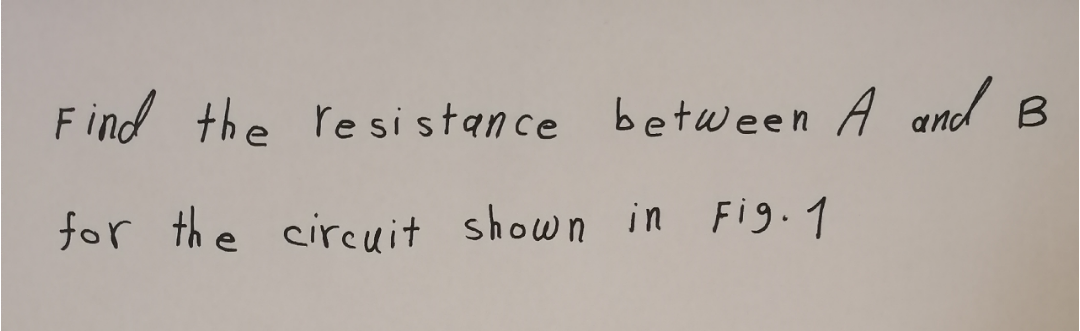 Find the resistance between A and B
for the circuit shown in Fig. 1